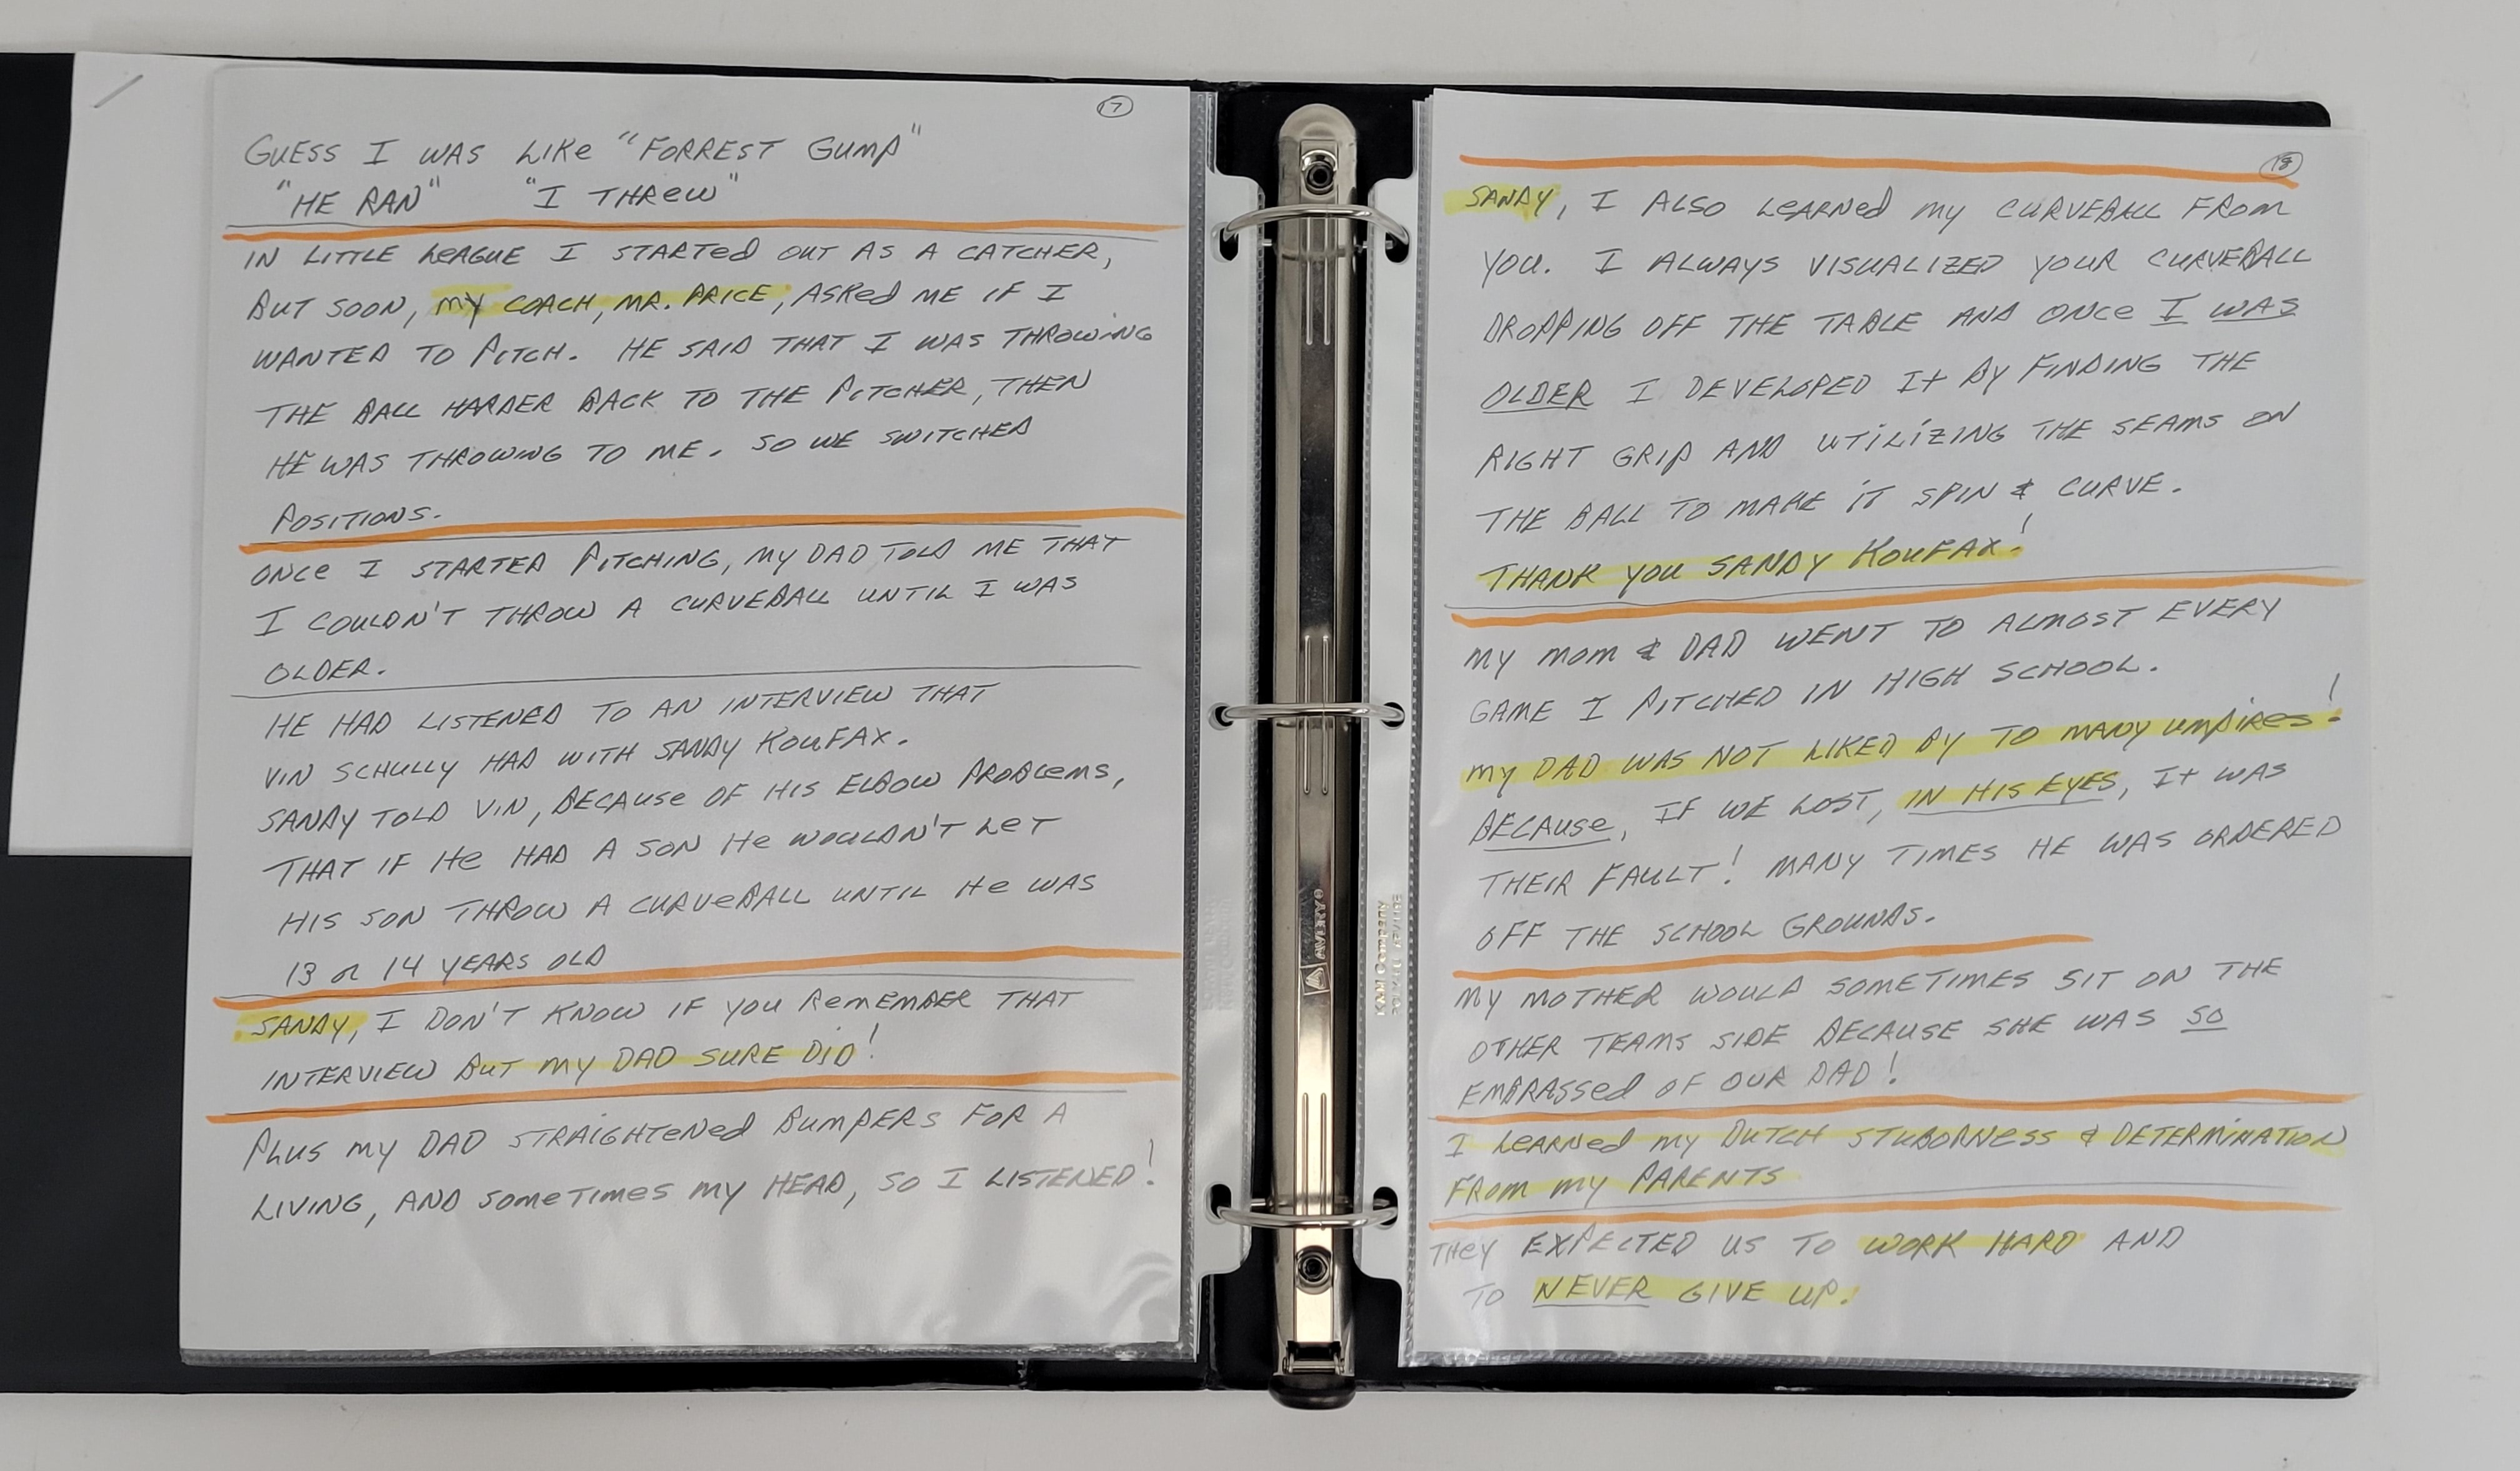 17
GUESS I WAS LIKE "FORREST GUMP"
"HE RAN" "I THREW"
IN LITTLE LEAGUE I STARTED OUT AS A CATCHER,
BUT SOON, MY COACH, MR. PRICE, ASKED ME IF I
WANTED TO PITCH. HE SAID THAT I WAS THROWING
THE BALL HARDER BACK TO THE PITCHER, THEN
HE WAS THROWING TO ME. SO WE SWITCHED
POSITIONS.
ONCE I STARTED PITCHING, MY DAD TOLD ME THAT
I COULDN'T THROW A CURVEBALL UNTIL I WAS
OLDER.
HE HAD LISTENED TO AN INTERVIEW THAT
VIN SCHULLY HAD WITH SANDY KOUFAX.
SANDY TOLD VIN, BECAUSE OF HIS ELBOW PROBLEMS,
THAT IF HE HAD A SON HE WOULDN'T LET
HIS SON THROW A CURVEBALL UNTIL HE WAS
13 or 14 YEARS OLD
SANDY, I DON'T KNOW IF YOU REMEMBER THAT
INTERVIEW BUT MY DAD SURE DID!
PLUS MY DAD STRAIGHTENED BUMPERS FOR A
LIVING, AND SOMETIMES MY HEAD, SO I LISTENED!
AVERY®
18
SANDY, I ALSO LEARNED MY CURVEBALL FROM
YOU. I ALWAYS VISUALIZED YOUR CURVEBALL
DROPPING OFF THE TABLE AND ONCE I WAS
OLDER I DEVELOPED IT BY FINDING THE
RIGHT GRIP AND UTILIZING THE SEAMS ON
THE BALL TO MAKE IT SPIN & CURVE.
THANK YOU SANDY KOUFAX!
MY MOM & DAD WENT TO ALMOST EVERY
GAME I PITCHED IN HIGH SCHOOL.
MY DAD WAS NOT LIKED BY TO MANY UMPIRES!
BECAUSE, IF WE LOST, IN HIS EYES, IT WAS
THEIR FAULT! MANY TIMES HE WAS ORDERED
OFF THE SCHOOL GROUNDS.
MY MOTHER WOULD SOMETIMES SIT ON THE
OTHER TEAMS SIDE BECAUSE SHE WAS SO
EMBRASSED OF OUR DAD!
I LEARNED MY DUTCH STUBORNESS & DETERMINATION
FROM MY PARENTS
THEY EXPECTED US TO WORK HARD AND
TO NEVER GIVE UP.